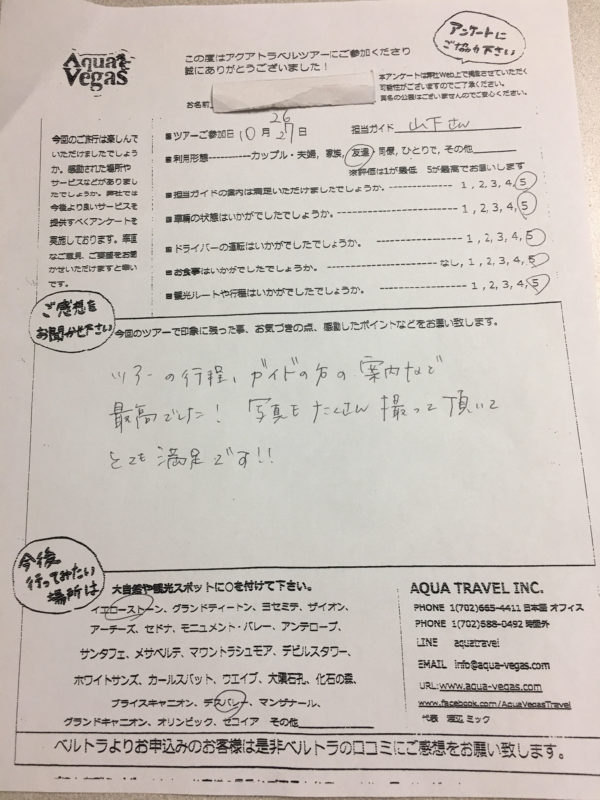 Aqua
Vegas
この度はアクアトラベルツアーにご参加くださり
誠にありがとうございました！
アンケートに
ご協力下さい
本アンケートは弊社Web上で掲載させていただく
可能性がございますのでご了承ください。
実名の公開はございませんのでご安心ください。
お名前
今回のご旅行は楽しんで
いただけましたでしょう
か。感動された場所や
サービスなどがありまし
たでしょうか。弊社では
今後より良いサービスを
提供すべくアンケートを
実施しております。率直
なご意見、ご要望をお聞
かせいただけますと幸い
です。
26
■ツアーご参加日 10月 27日 担当ガイド 山下さん
■利用形態----------カップル・夫婦, 家族, 友達, 同僚, ひとりで, その他
※評価は1が最低 5が最高でお願いします
■担当ガイドの案内は満足いただけましたでしょうか。---------------- 1, 2, 3, 4, 5
■車輛の状態はいかがでしたでしょうか。---------------- 1, 2, 3, 4, 5
■ドライバーの運転はいかがでしたでしょうか。---------------- 1, 2, 3, 4, 5
■お食事はいかがでしたでしょうか。---------------- なし, 1, 2, 3, 4, 5
■観光ルートや行程はいかがでしたでしょうか。---------------- 1, 2, 3, 4, 5
ご感想を
お聞かせ下さい
今回のツアーで印象に残った事、お気づきの点、感動したポイントなどをお願い致します。
ツアーの行程、ガイドの方の案内など
最高でした！ 写真もたくさん撮って頂いて
とても満足です!!
今後
行ってみたい
場所は
大自然や観光スポットに○を付けて下さい。
イエローストーン、グランドティートン、ヨセミテ、ザイオン、
アーチーズ、セドナ、モニュメント・バレー、アンテロープ、
サンタフェ、メサベルデ、マウントラシュモア、デビルスタワー、
ホワイトサンズ、カールスバット、ウエイブ、大隕石孔、化石の森、
ブライスキャニオン、デスバレー、マンザナール、
グランドキャニオン、オリンピック、セコイア その他
AQUA TRAVEL INC.
PHONE 1(702)665-4411 日本語 オフィス
PHONE 1(702)588-0492 時間外
LINE aquatravel
EMAIL info@aqua-vegas.com
URL:www.aqua-vegas.com
www.facebook.com/AquaVegasTravel
代表 渡辺 ミック
ベルトラよりお申込みのお客様は是非ベルトラの口コミにご感想をお願い致します。